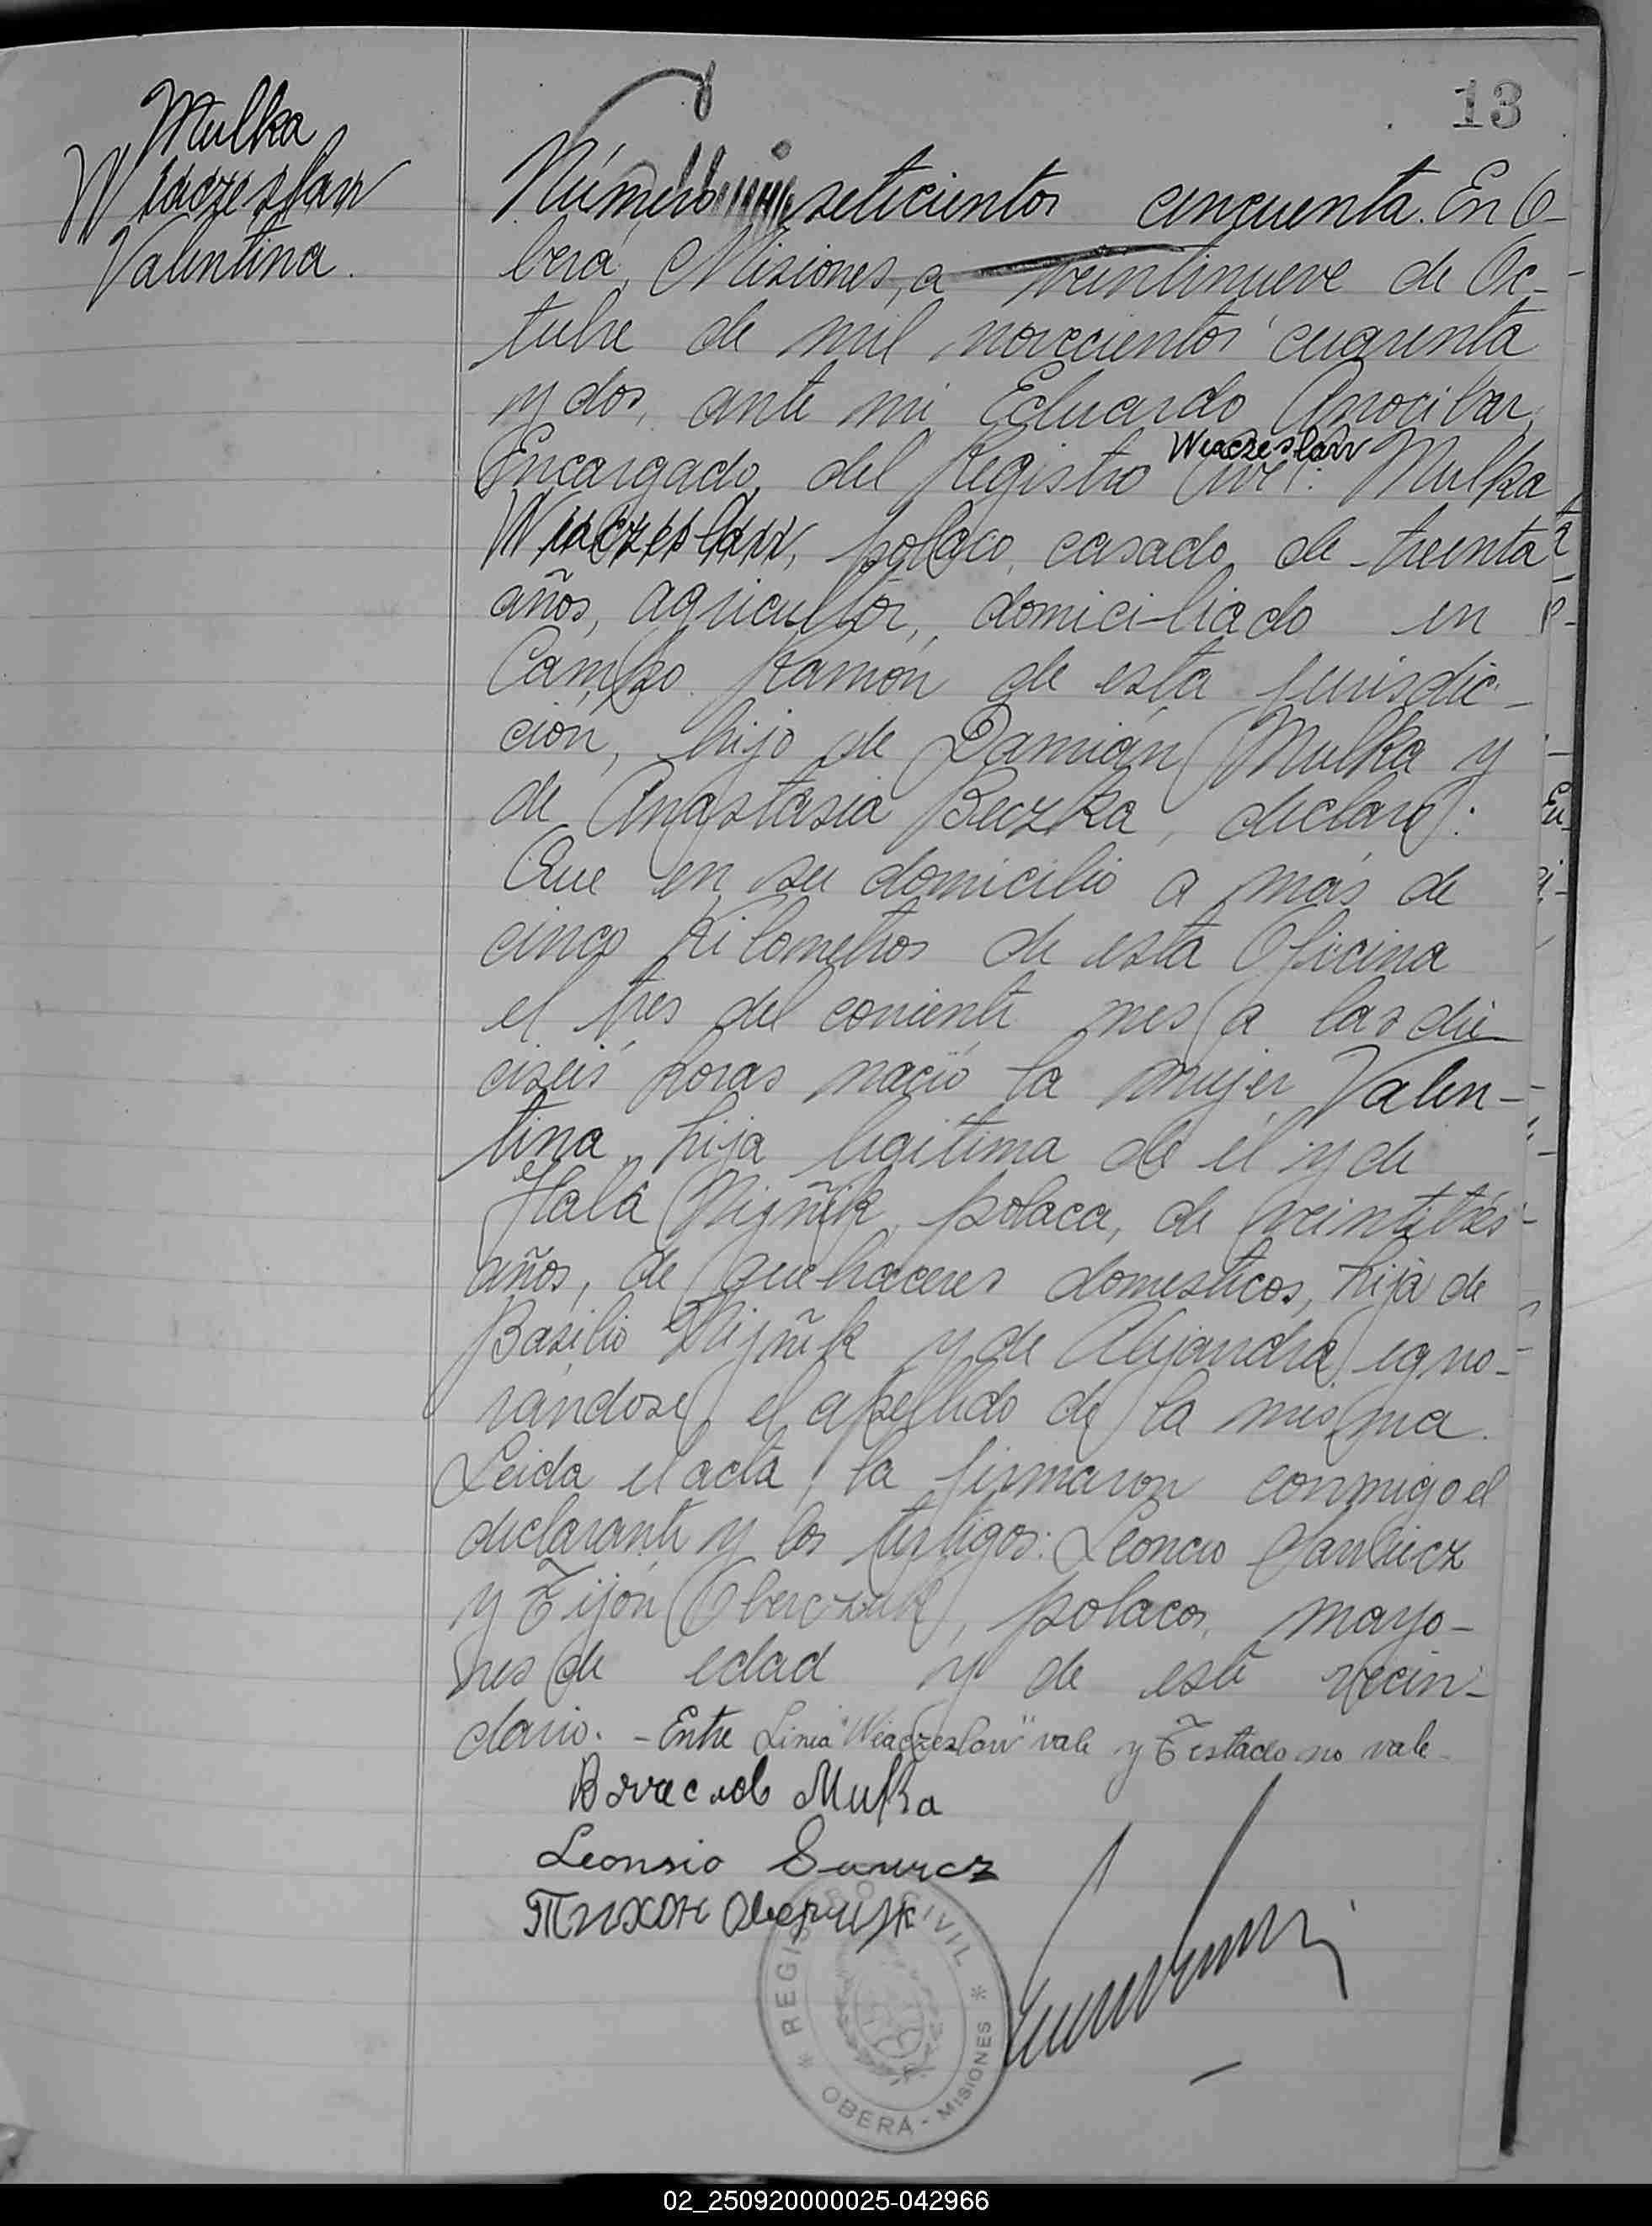 13
Mulka
Wiaczeslaw
Valentina.
Número setecientos cincuenta. En O-
berá, Misiones, a veintinueve de Oc-
tubre de mil novecientos cuarenta
y dos, ante mi Eduardo Arrocibar,
Encargado del Registro Civil:
Wiaczeslaw
Mulka
Wiaczeslaw, polaco, casado, de treinta
años, agricultor, domiciliado en
Campo Ramón de esta jurisdic-
ción, hijo de Damián Mulka y
de Anastasia Beczka, declaró:
Que en su domicilio a más de
cinco kilometros de esta Oficina
el tres del corriente mes a las die-
ciseis horas nació la mujer Valen-
tina, hija legitima de él y de
polaca, de veintitrés
años, de quehaceres domesticos, hija de
Basilio y de Alejandra igno-
rándose el apellido de la misma.
Leida el acta, la firmaron conmigo el
declarante y los testigos: Leoncio
y Tijón Oberczuk, polacos, mayo-
res de edad y de este vecin-
dario. - Entre Linea "Wiaczeslaw" vale y Testado no vale-
Mulka
Leonsio
Тихон
REGISTRO CIVIL
OBERÁ - MISIONES
02_250920000025-042966